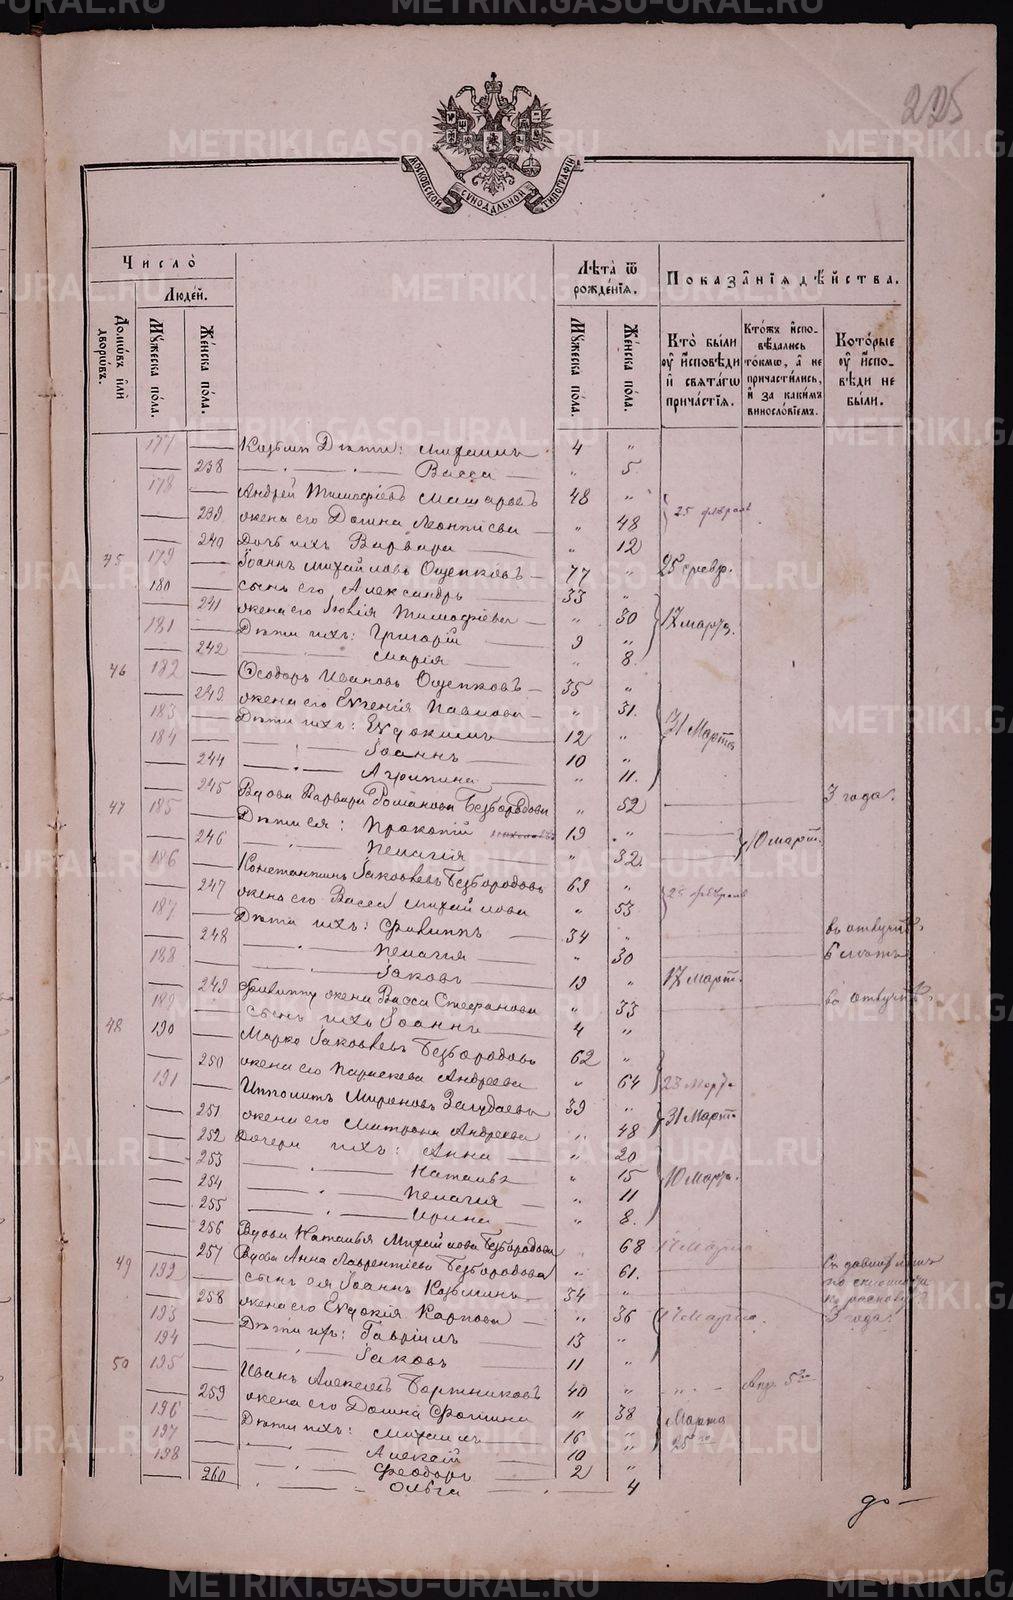 225
МОСКОВСКОЙ СУНОДАЛЬНОЙ ТИПОГРАФІИ
Число̀
Людей.
Домѡвъ или дворѡвъ.
Мꙋжеска пола.
Женска пола.
Лѣта ѿ рожденїѧ.
Мꙋжеска пола.
Женска пола.
Показанїѧ дѣйства.
Кто были ᲂу исповѣди и свѧтагѡ причастїѧ.
Ктожъ исповѣдались токмѡ, а не причастились, и за какимъ винословїемъ.
Которые ᲂу исповѣди не были.
177 Козьмы Дѣти: Михаилъ 4 "
238 Васса " 5
178 Андрей Тимофѣевъ 48 "
239 жена его Домна Леонтіева " 48 25 февраля
240 Дочь ихъ Варвара " 12
45 179 Іоаннъ Михайловъ Ощепковъ 77 " 25 февр.
180 сынъ его Александръ 33 "
241 жена его Тимофѣева " 30 17 марта.
181 Дѣти ихъ: Григорій 9 "
242 Марія " 8.
46 182 Ѳеодоръ Ивановъ Ощепковъ 35 "
243 жена его Евгенія Павлова " 31.
183 Дѣти ихъ: Евдокимъ 12 " 31 Марта
184 Іоаннъ 10 "
244 Агрипина " 11.
245 Вдова Варвара Романова Безбородова " 52 3 года.
47 185 Дѣти ея: Прокопій 19 "
246 Пелагія " 32 10 март.
186 Константинъ Іаковлевъ Безбородовъ 69 "
247 жена его Васса Михайлова " 53 25 февраля
187 Дѣти ихъ: Филиппъ 34 " въ отлучкѣ
248 Пелагія " 30 6 лѣтъ
188 Іаковъ 19 " 17 Март.
249 Филиппа жена Васса Стефанова " 33 въ отлучкѣ.
189 сынъ ихъ Іоаннъ 4 "
48 190 Марко Іаковлевъ Безбородовъ 62 "
250 жена его Параскева Андреева " 64 23 Марта
191 Ипполитъ Мироновъ 39 " 31 Марта
251 жена его Матрона Андреева " 48
252 Дочери ихъ: Анна " 20
253 Наталья " 15 10 Марта.
254 Пелагія " 11
255 Ирина " 8.
256 Вдова Наталья Михайлова Безбородова " 68 17 Марта
49 257 Вдова Анна Лаврентіева Безбородова " 61. по склонности къ расколу
192 сынъ ея Іоаннъ Козьминъ 34 " 3 года.
258 жена его Евдокія Карпова " 36 17 Марта
193 Дѣти ихъ: Гавріилъ 13 "
194 Іаковъ 11 "
50 195 Иванъ Алексѣевъ Бортниковъ 40 " " Апр. 5го
259 жена его Домна Фомина " 38 Марта 25го
196 Дѣти ихъ: Михаилъ 16 "
197 Алексій 10 "
198 Ѳеодоръ 2 "
260 Ольга 4
до
METRIKI.GASO-URAL.RU